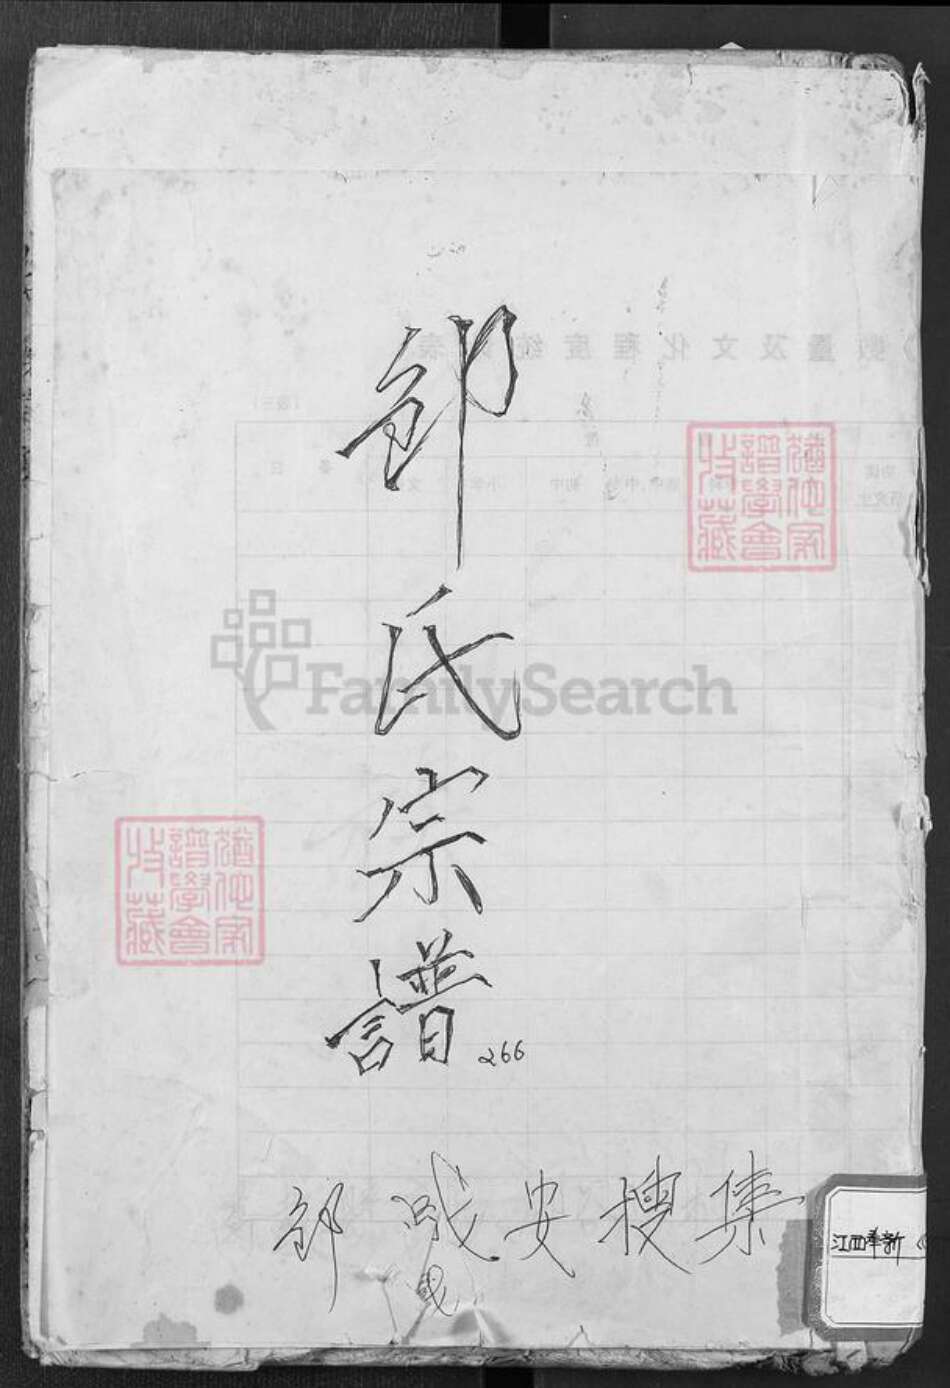 邵氏宗譜
266
邵安搜集
江西奉新
猶他家
譜學會
收藏
猶他家
譜學會
收藏
FamilySearch